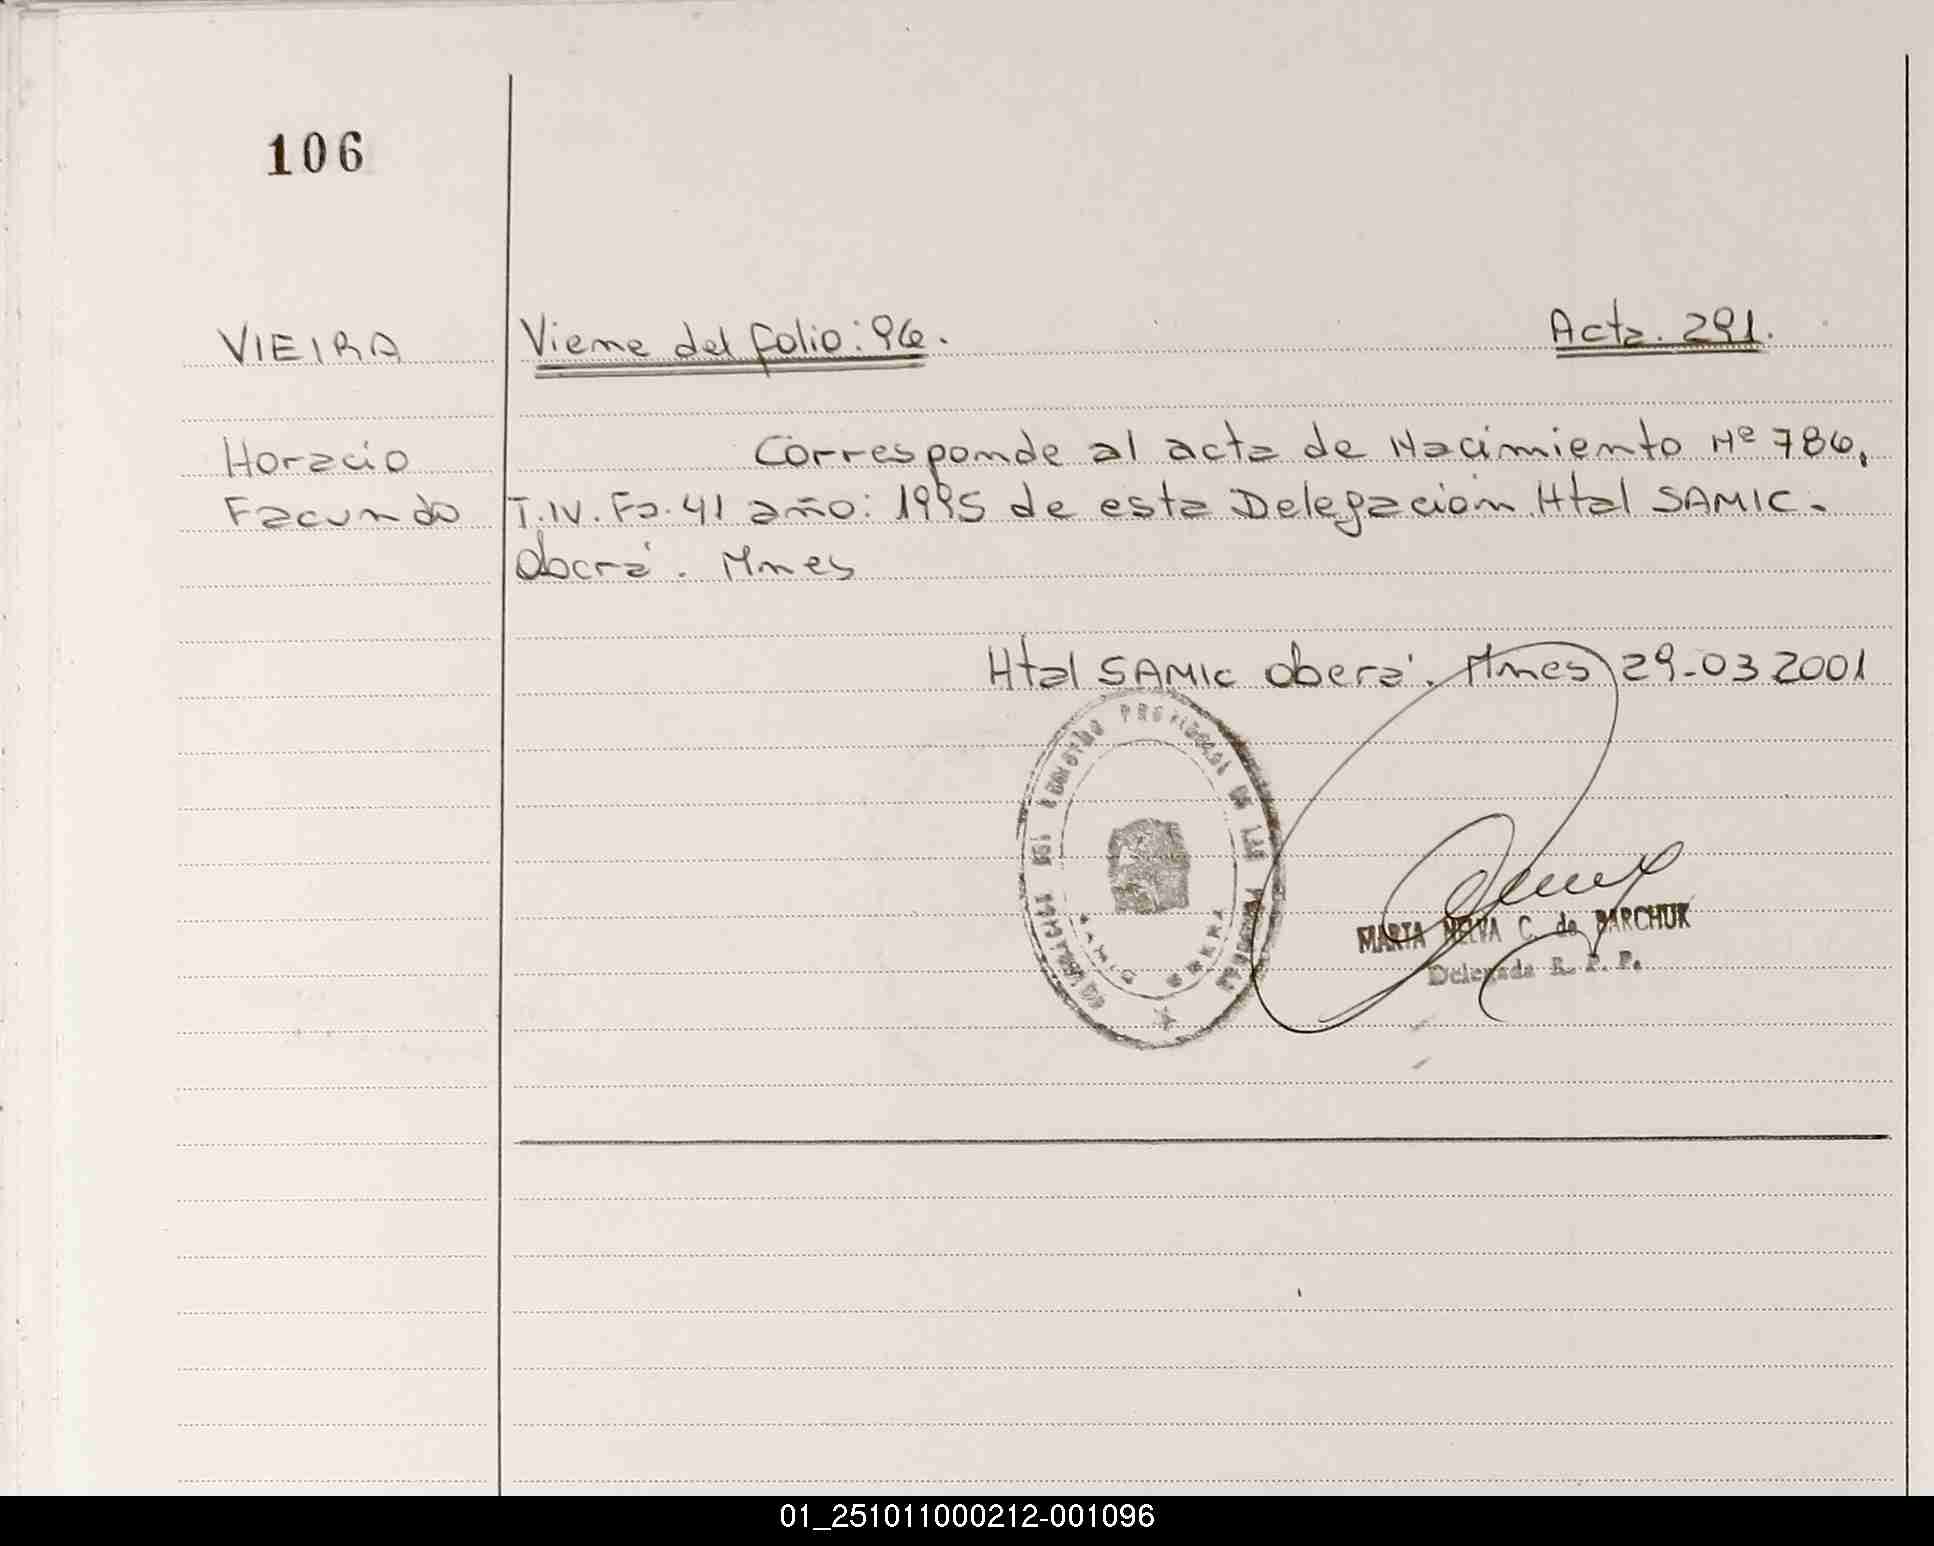 106
VIEIRA
Viene del folio: 96.
Acta. 291.
Horacio
Facundo
Corresponde al acta de Nacimiento Nº 786,
T.IV. Fo. 41 año: 1995 de esta Delegación Htal SAMIC.
Oberá. Mnes
Htal SAMIC Oberá. Mnes 29-03 2001
REGISTRO PROVINCIAL DE LAS PERSONAS
SAMIC OBERA
MARTA NELVA C. de BARCHUK
Delegada R. P. P.
01_251011000212-001096